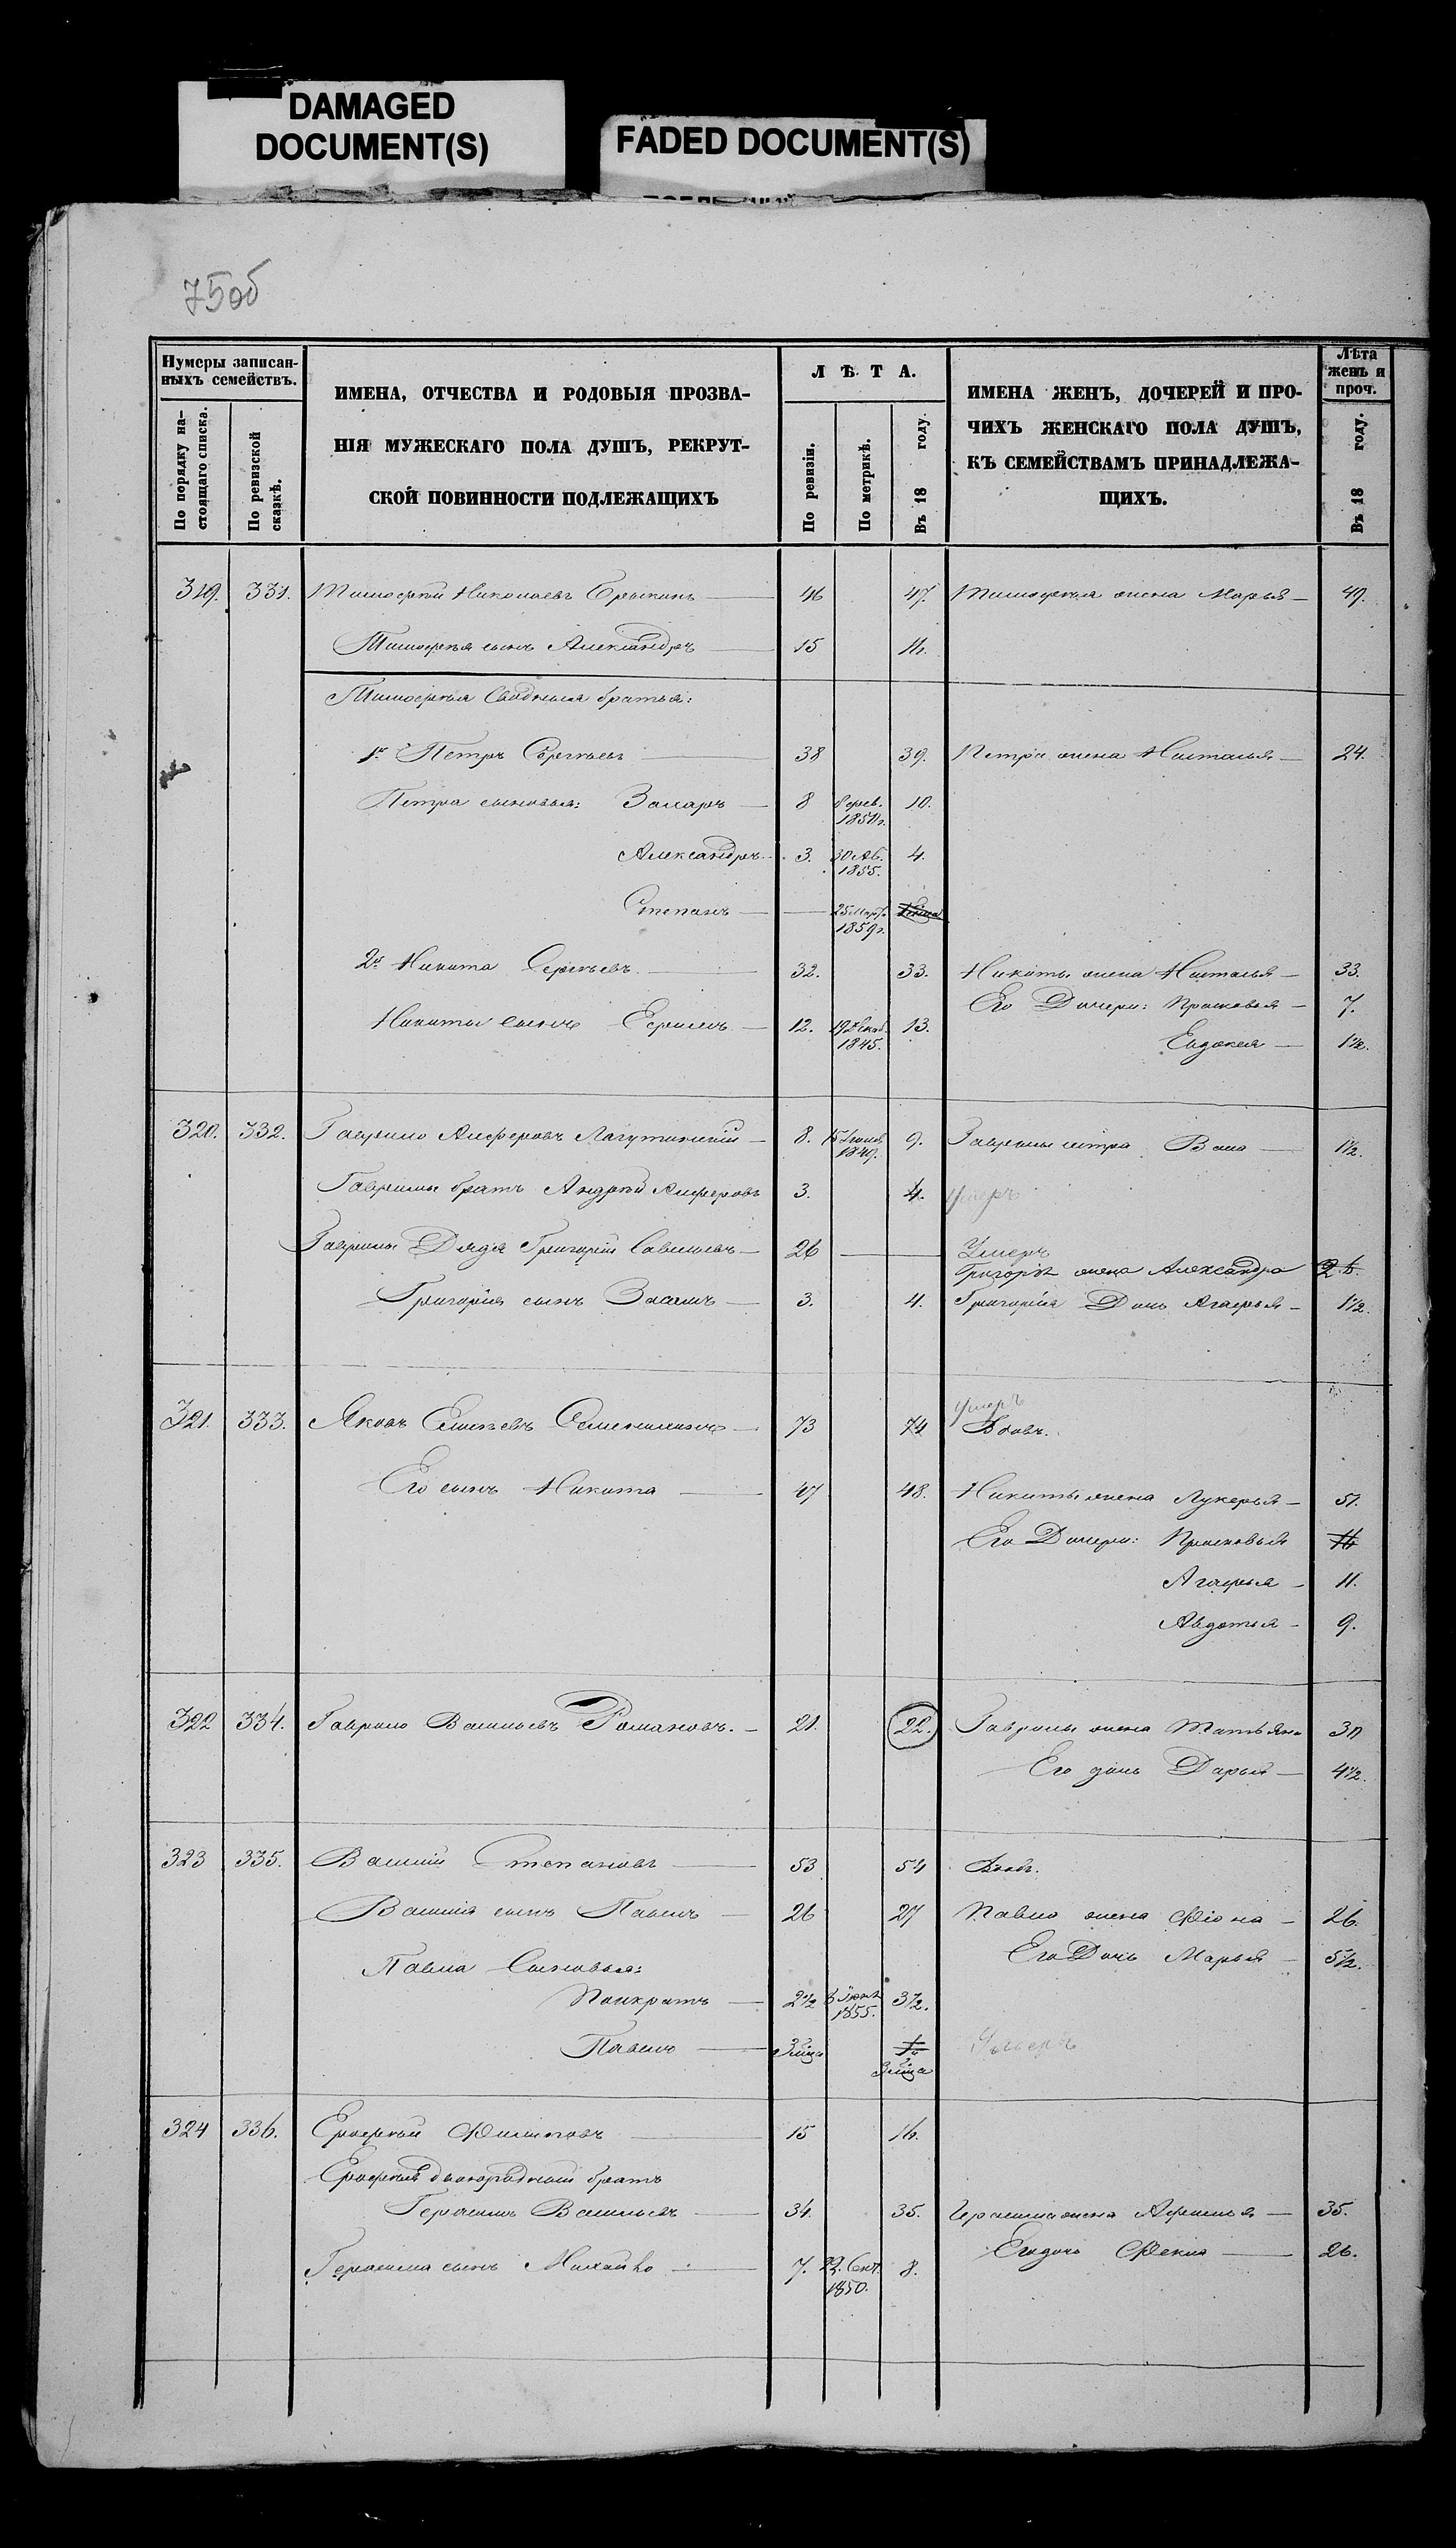 DAMAGED
DOCUMENT(S)
FADED DOCUMENT(S)
75 об
Нумеры записан-
ныхъ семействъ.
По порядку на-
стоящаго списка.
По ревизской
сказкѣ.
ИМЕНА, ОТЧЕСТВА И РОДОВЫЯ ПРОЗВА-
НІЯ МУЖЕСКАГО ПОЛА ДУШЪ, РЕКРУТ-
СКОЙ ПОВИННОСТИ ПОДЛЕЖАЩИХЪ
ЛѢТА.
По ревизіи.
По метрикѣ.
Въ 18 году.
ИМЕНА ЖЕНЪ, ДОЧЕРЕЙ И ПРО-
ЧИХЪ ЖЕНСКАГО ПОЛА ДУШЪ,
КЪ СЕМЕЙСТВАМЪ ПРИНАДЛЕЖА-
ЩИХЪ.
Лѣта
женъ и
проч.
Въ 18 году.
319. 331. Тимофей Николаевъ 46 47. Тимофея жена Марья 49.
Тимофея сынъ Александръ 15 16.
Тимофея Сводныя братья:
1й Петръ Сергѣевъ 38 39. Петра жена Наталья 24.
Петра сыновья: Захаръ 8 8 фев. 10.
Александръ 3. 30 Ав. 4.
1855.
Степанъ 25 Март.
1859 г.
2й Никита Сергѣевъ 32. 33. Никиты жена Наталья 33.
Его Дочери: Прасковья 7.
Никиты сынъ Ефимъ 12. 19 Декаб. 13.
1845.
Евдокея 1½.
320. 332. Гаврило Алферовъ 8. 9. Гаврилы сестра 1½.
1849.
Гаврилы братъ Андрей Алферовъ 3. 4. Умеръ
Гаврилы Дядя Григорій Савельевъ 26 Умеръ
Григорія жена Александра 26.
Григорія сынъ 3. 4. Григорія Дочь Агафья 1½.
321. 333. Яковъ 73 74 Умеръ
Вдовъ.
Его сынъ Никита 47 48. Никиты жена Лукерья 51.
Его Дочери: Прасковья 16
Агафья 11.
Авдотья 9.
322 334. Гаврило Васильевъ Романовъ. 21. 22. Гаврилы жена Татьяна 30
Его дочь Дарья 4½.
323 335. Василій Степановъ 53 54 Вдовъ.
Василія сынъ Павелъ 26 27 Павла жена Фіона 26.
Его Дочь Марья 5½.
Павла Сыновья:
Панкратъ 2½ 3½.
1855.
Павелъ Умеръ
324 336. Ерофей Филиповъ 15 16.
Ерофея двоюродный братъ
Герасимъ Васильевъ 34. 35. Герасима жена Афимья 35.
Его дочь Фекла 26.
Герасима сынъ Михайло 7. 22. Сент. 8.
1850.